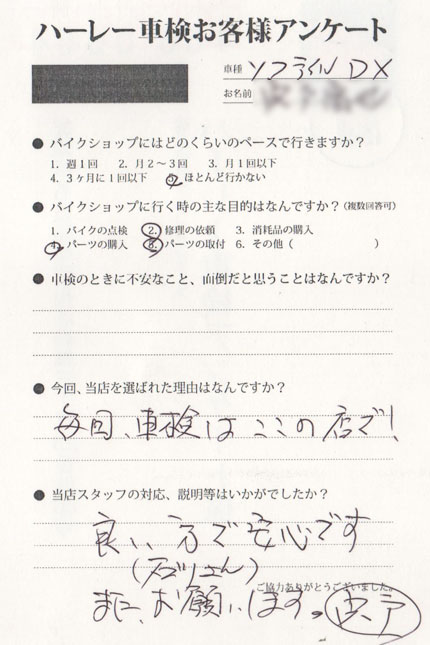 ハーレー車検お客様アンケート
車種 ソフテイル DX
お名前
● バイクショップにはどのくらいのペースで行きますか?
1. 週1回 2. 月2~3回 3. 月1回以下
4. 3ヶ月に1回以下 5. ほとんど行かない
● バイクショップに行く時の主な目的はなんですか?(複数回答可)
1. バイクの点検 2. 修理の依頼 3. 消耗品の購入
4. パーツの購入 5. パーツの取付 6. その他 ( )
● 車検のときに不安なこと、面倒だと思うことはなんですか?
● 今回、当店を選ばれた理由はなんですか?
毎回、車検はここの店で!
● 当店スタッフの対応、説明等はいかがでしたか?
良い方で安心です
ご協力ありがとうございました。
また、お願いします。